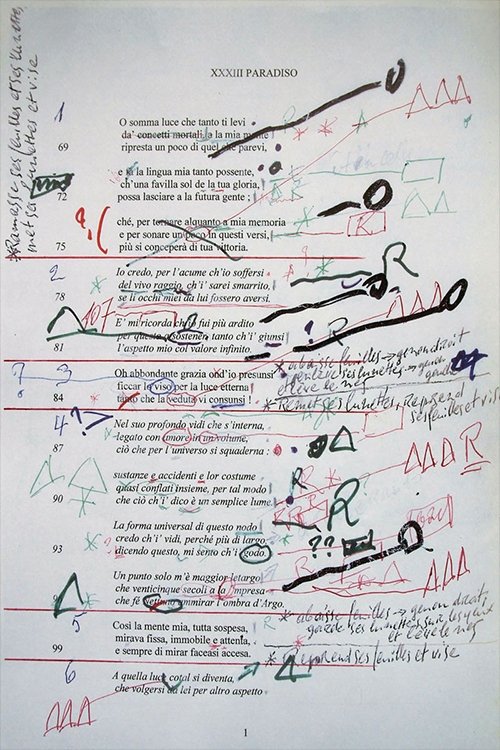 XXXIII PARADISO
1
O somma luce che tanto ti levi
da' concetti mortali, a la mia mente
69 ripresta un poco di quel che parevi,
e fa la lingua mia tanto possente,
ch'una favilla sol de la tua gloria,
72 possa lasciare a la futura gente ;
ché, per tornare alquanto a mia memoria
e per sonare un poco in questi versi,
75 più si conceperà di tua vittoria.
2
Io credo, per l'acume ch'io soffersi
del vivo raggio, ch'i' sarei smarrito,
78 se li occhi miei da lui fossero aversi.
107
E' mi ricorda ch'io fui più ardito
per questo a sostener, tanto ch'i' giunsi
81 l'aspetto mio col valore infinito.
? 3
Oh abbondante grazia ond'io presunsi
ficcar lo viso per la luce etterna
84 tanto che la veduta vi consunsi !
4 ?
Nel suo profondo vidi che s'interna,
legato con amore in un volume,
87 ciò che per l'universo si squaderna :
sustanze e accidenti e lor costume
quasi conflati insieme, per tal modo
90 che ciò ch'i' dico è un semplice lume.
La forma universal di questo nodo
credo ch'i' vidi, perché più di largo,
93 dicendo questo, mi sento ch'i' godo.
Un punto solo m'è maggior letargo
che venticinque secoli a la 'mpresa
che fé ammirar l'ombra d'Argo.
5
Così la mente mia, tutta sospesa,
mirava fissa, immobile e attenta,
99 e sempre di mirar faceasi accesa.
6
A quella luce cotal si diventa,
che volgersi da lei per altro aspetto
1
*Ramasse ses feuilles et ses lunettes,
met ses lunettes et vise
R
R
R
* abaisse feuilles → genou droit
* Remet ses lunettes, reprend
ses feuilles et vise
R
R
R
??
* abaisse feuilles → genou droit,
garde ses lunettes sur les yeux
et lève le nez
* Reprend ses feuilles et vise